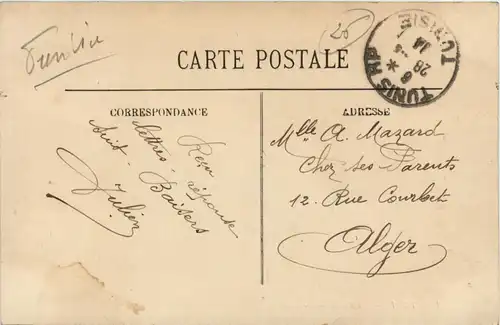 Tunisie
20
CARTE POSTALE
TUNIS RP * TUNISIE
28 -4 14
CORRESPONDANCE
ADRESSE
Reçu réponse
lettres - Baisers
suit -
Julien
Mlle A. Mazard
Chez ses Parents
12. Rue Courbet
Alger